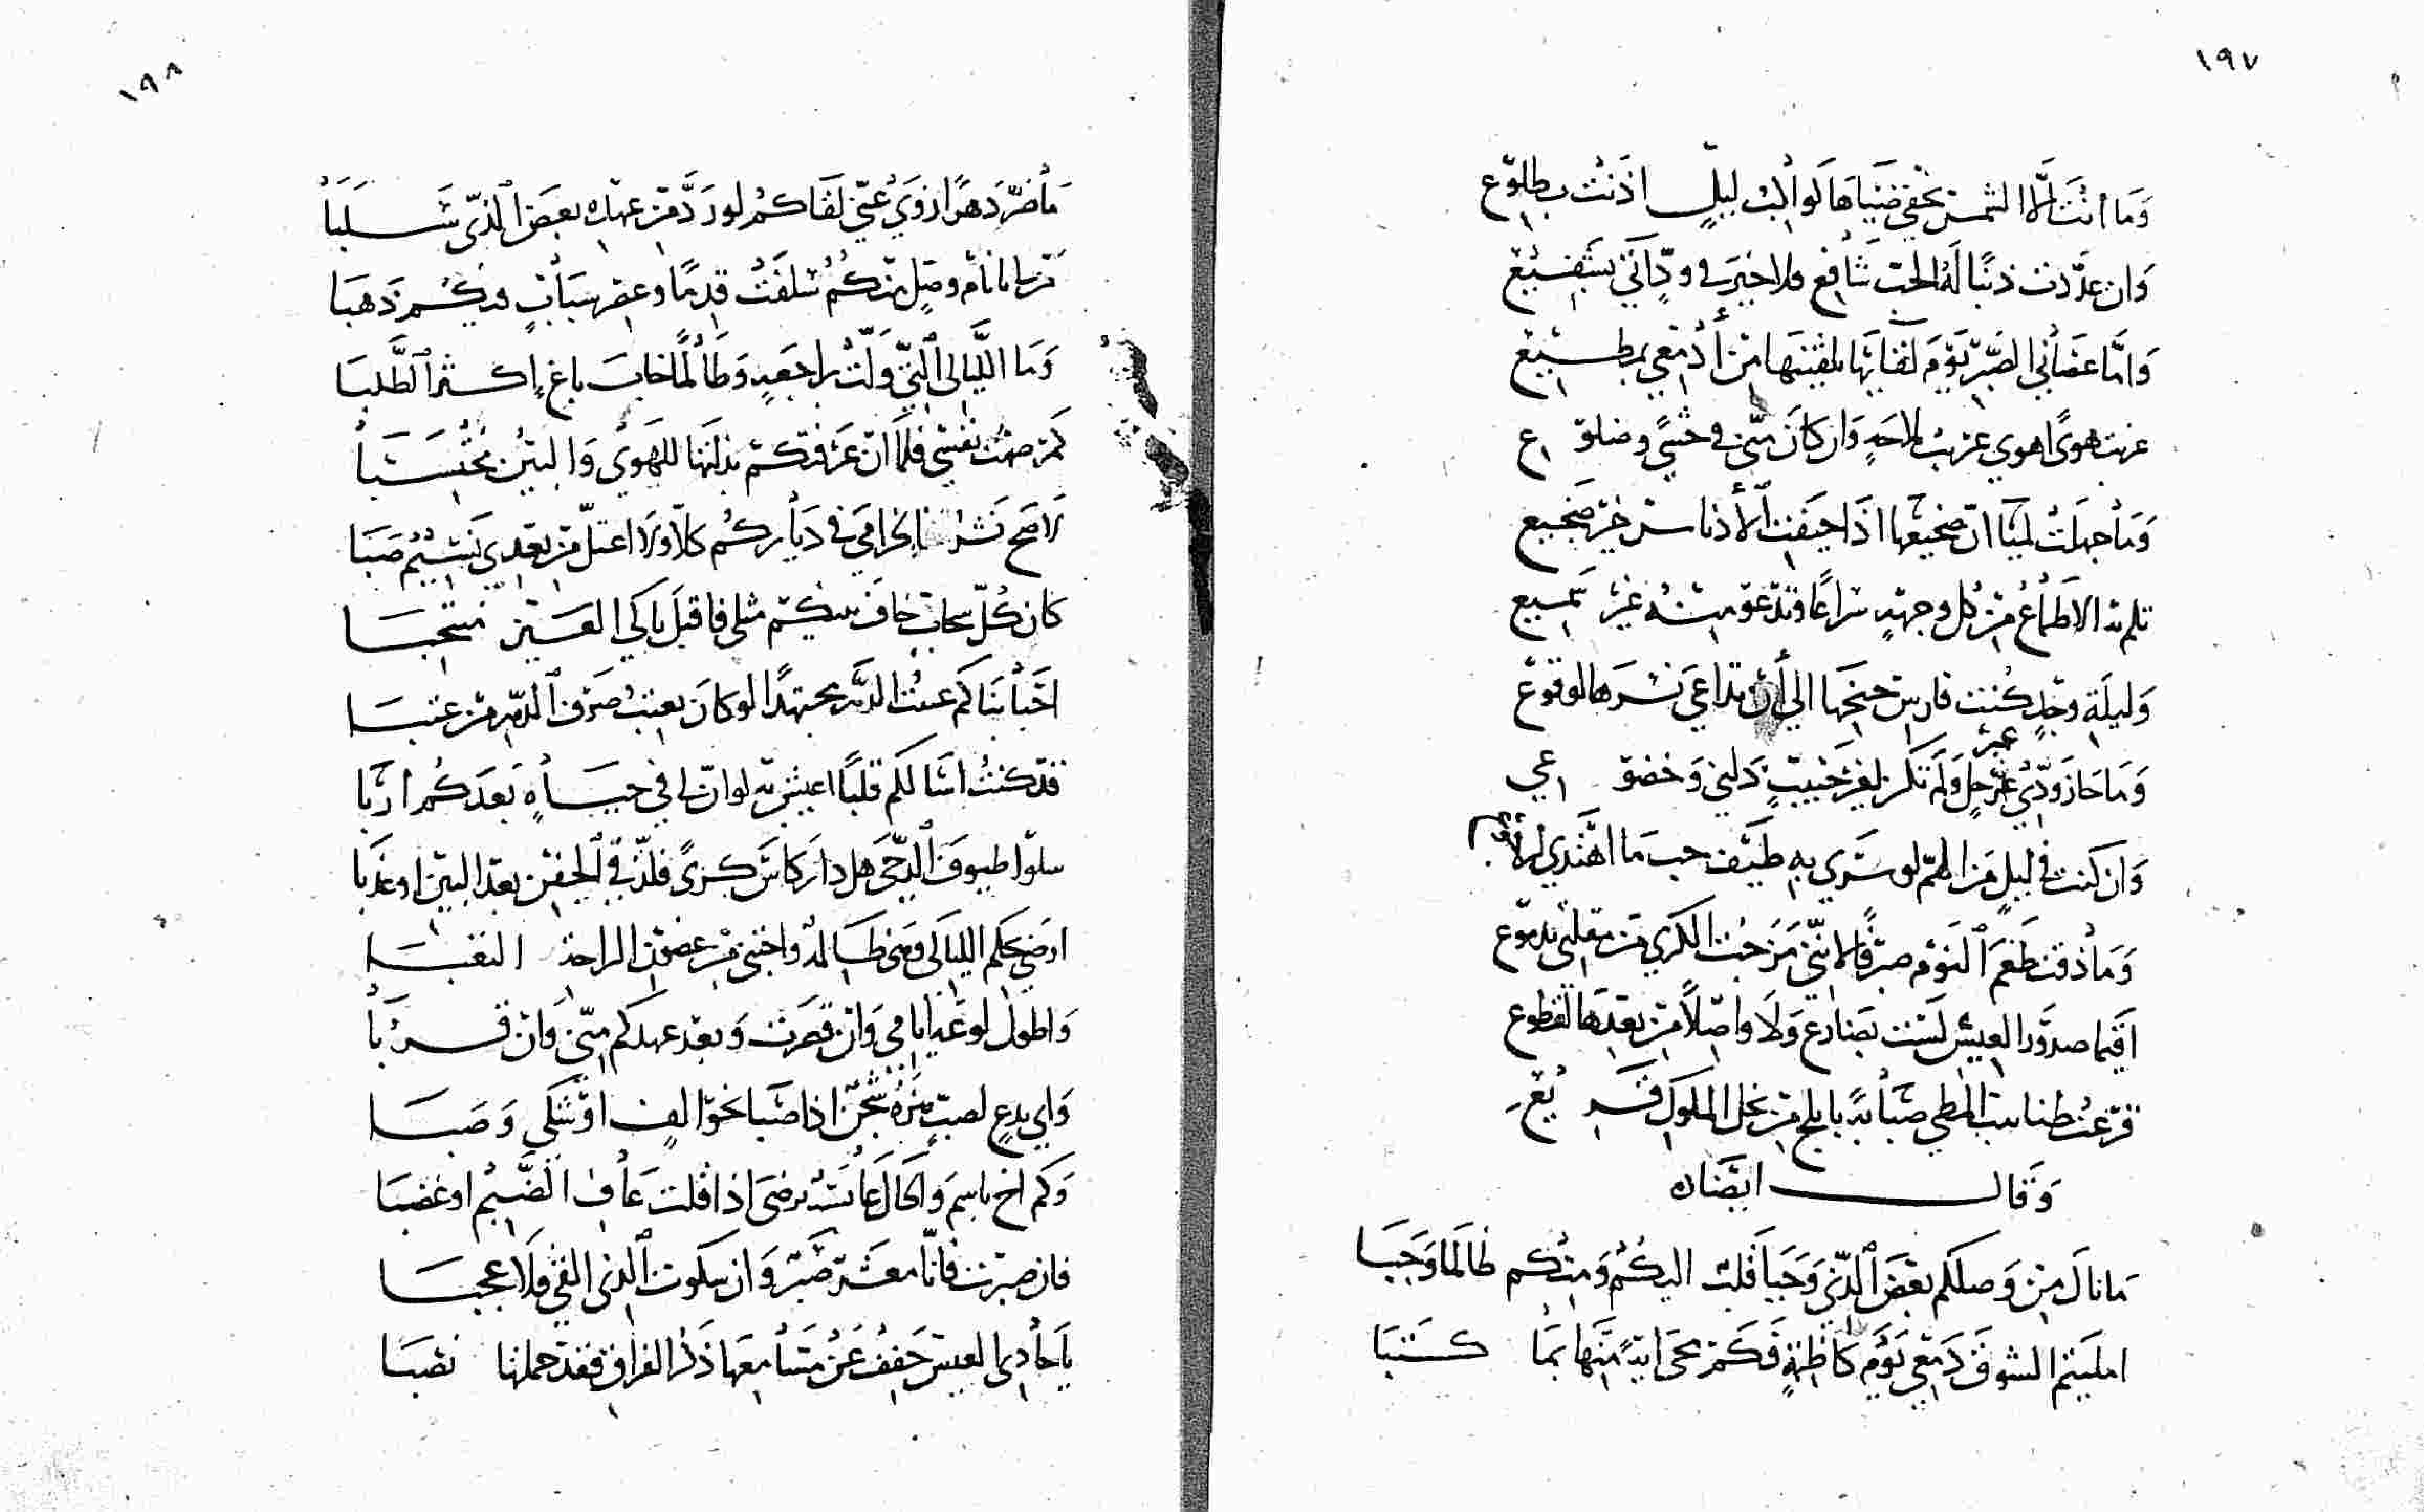 ١٩٧
وَما انْتَ إلّا الشمسُ يَخفى ضَياهَا لَو البُ ليلٍ اذَنَتْ بطلوع
وَان عدَّدت ذنبًا لَهُ الحبّ شَافِع ولا خيرَ في ودٍّ اتَى بشَفيع
وَامّا عصَاني الصَبر يَوْمَ لقائها لقيتها من أدمُعي بمطيع
غريب هوىً اهوي غريبُ ملاحةٍ وَان كانَ منّي في حشًي وضلوع
وَما جهلَتْ لمياً انّ ضجيعَها اذَا جيفت الأدناس خير ضجيع
تلم به الاطماعُ من كل وجهةٍ سراعًا وتدعو منه غيرُ سميع
وَليلَةِ وجدٍ كُنت فارس جنحِها الي أن تداعى نسرها لوقوع
وَما حَاز ودّي غير حل وَلم تكن لغير حَبيبٍ ذلتي وَخضوعي
غير
وَان كنت في ليلٍ مَن الهمّ لو سَرَي بهِ طَيف حب مَا اهتَدي
وَما ذقت طَعْمَ النَوْم صرفًا لأنّني مَزَجتُ الكرَي من مقلتي بدموع
اقيما صدوَر العيس لَسْت بضارع وَلَا واصلاً من بعدها لقطوع
قرعتُ طنابيب المطي صَبابةً بابلج من نجل الملوك قريع
وَقالــــ ايضًا
مَا نالَ مِن وَصلكم بعْضَ الّذي وَجَبا قلب اليكُمْ وَمنكم طالَما وَجَبَا
امليتم الشوق دَمْعي يَوْم كاظمةٍ فَكَم محَى آيةً مِنهَا بمَا كتَبَا
١٩٨
مَا ضَرّ دَهرًا زوَيْ عَنّي لقَاكمُ لو رَدَّ من عهده بعَضَ الّذي سَلَبَا
من لي بايام وصلٍ منكمُ سَلفَتْ قدمًا وعصرِ شبابٍ فيكُم ذَهبَا
وَمَا اللَّيالي الّتي وَلّتْ براجعةٍ وَطَالما خابَ باغٍ اكثر الطَّلبَا
كم صنتُ نفسي فلمَّا انْ عَرَفتكمُ بذلتها للهَويْ وَالبينُ محْتَسَبا
لاصح نَشر الخزامَى في ديَاركمُ كلّا ولا اعتلّ من بعدي نَسيمُ صَبَا
كان كُلّ سحابٍ خافَ بينكم مثلي فاقبل باكي العَين منتحبا
احبَابنَا كم عتبتُ الدّهر مجتهدًا لو كان يعتبُ صرْف الدّهر من عتبا
قد كنتُ اسَا لكم قلبًا اعيش به لو انّ لي في حيَاةٍ بَعدَكم اربَا
سلوا طيوفَ الدّجى هل دارَ كاس كرىً فلذّ في الجفن بعْد البين او عذبَا
اوضحكم الليالي وهي ظالمةٌ واجتنى من عضون الراحة التعبا
وَاطول لوعَة ايامي وَان قصرَت وَبعد عهدكم منّي وَان قربَا
وَاي بدعٍ لصبٍّ هَزه شجن اذا صَبا نحو الفٍ اوشكي وَصَبا
وَكم اخٍ باسِم وَالحال عابسَة يرضى اذا قلت عَاف الضَّيم او غضبَا
فان صبرت فانّا معشر صُبر وَان شكوت الذي القى فلَا عجبا
يَا حادي العيس خَفف عَن مَسامعهَا ذكر الفراق فقد حملتها نصبَا